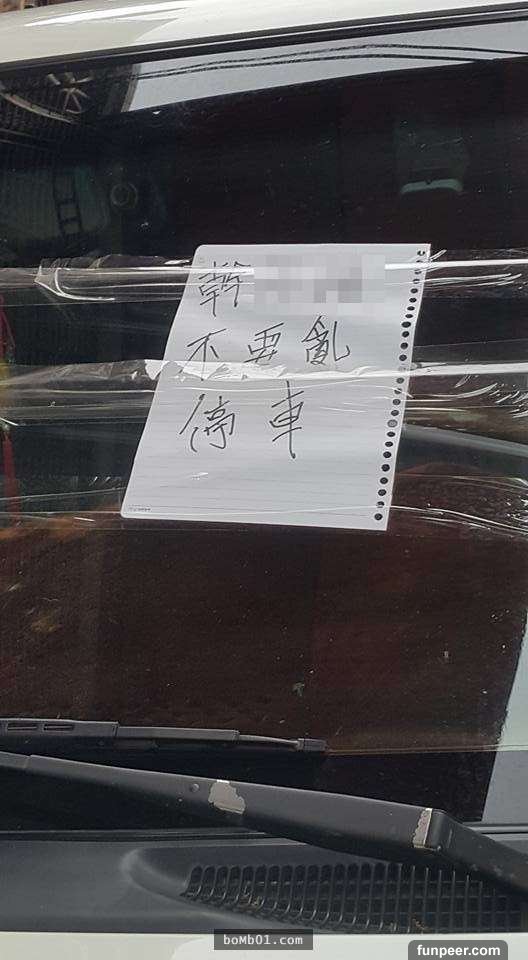 幹
不要亂
停車
boMb01.com
funpeer.com